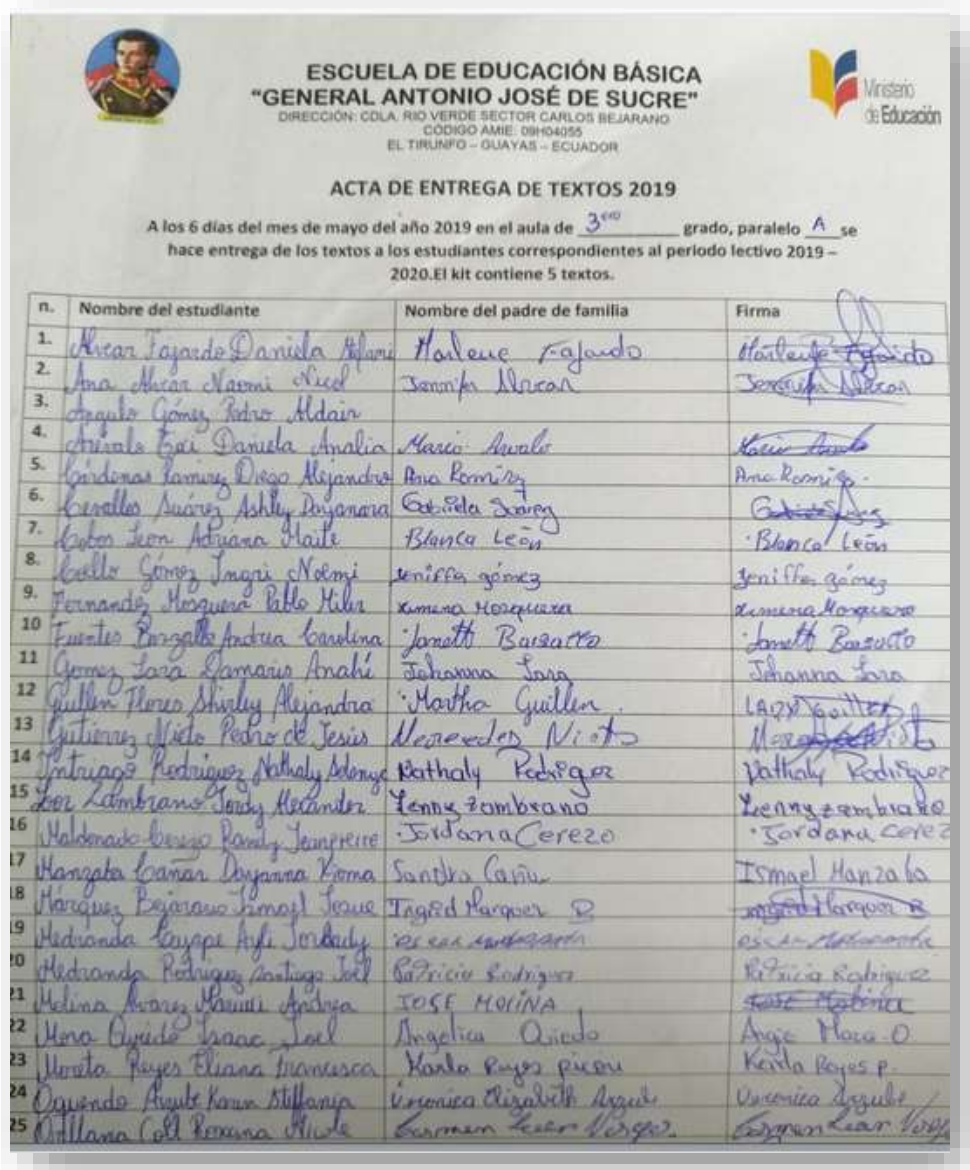 ESCUELA DE EDUCACIÓN BÁSICA
"GENERAL ANTONIO JOSÉ DE SUCRE"
DIRECCIÓN: CDLA. RIO VERDE SECTOR CARLOS BEJARANO
CÓDIGO AMIE: 09H04055
EL TIRUNFO – GUAYAS – ECUADOR
Ministerio
de Educación
ACTA DE ENTREGA DE TEXTOS 2019
A los 6 días del mes de mayo del año 2019 en el aula de 3ero grado, paralelo A se
hace entrega de los textos a los estudiantes correspondientes al periodo lectivo 2019 –
2020.El kit contiene 5 textos.
n. Nombre del estudiante Nombre del padre de familia Firma
1. Alvear Fajardo Daniela Marlene Fajardo Marlene Fajardo
2. Ana Alvear Naomi Nicol Jennifer Alvear Jennifer Alvear
3. Angulo Gómez Pedro Aldair
4. Arévalo Daniela Analia Mario Arevalo Mario
5. Cárdenas Ramirez Diego Alejandro Ana Ramirez Ana
6. Cevallos Suárez Ashley Dayanara Gabriela Suárez
7. Cobos León Adriana Maite Blanca León Blanca León
8. Coello Gómez Ingri Noemi Jeniffer gómez Jeniffer gómez
9. Fernandez Mosquera Pablo Ximena Mosquera Ximena Mosquera
10 Fuentes Andrea Carolina Janeth Janeth
11 Gomez Lara Damaris Anahí Johanna Lara Johanna Lara
12 Guillen Flores Shirley Alejandra Martha Guillen. LADY Guillen
13 Gutierrez Nieto Pedro de Jesús Mercedes Nieto
14 Intriago Rodriguez Nathaly Nathaly Rodriguez Nathaly Rodriguez
15 Lor Zambrano Jordy Alexander Lenny zambrano Lenny zambrano
16 Maldonado Cerezo Randy Jeanpierre Jordana Cerezo Jordana Cerez
17 Manzaba Cañar Dayanna Sandra Ismael Manzaba
18 Márquez Bejarano Ismael Josue Ingrid Marquez B Ingrid Marquez B
19 Medranda
20 Medranda Rodriguez Santiago Joel Patricia Rodriguez Patricia Rodriguez
21 Molina Alvarez Andrea JOSE MOLINA José Molina
22 Mera Oviedo Isaac Joel Angelica Oviedo Angie O
23 Moreta Reyes Eliana Francesca Karla Reyes Karla Reyes P.
24 Oquendo Karen Veronica Elizabeth Veronica
25 Orellana Coll Roxana Nicole Carmen Carmen